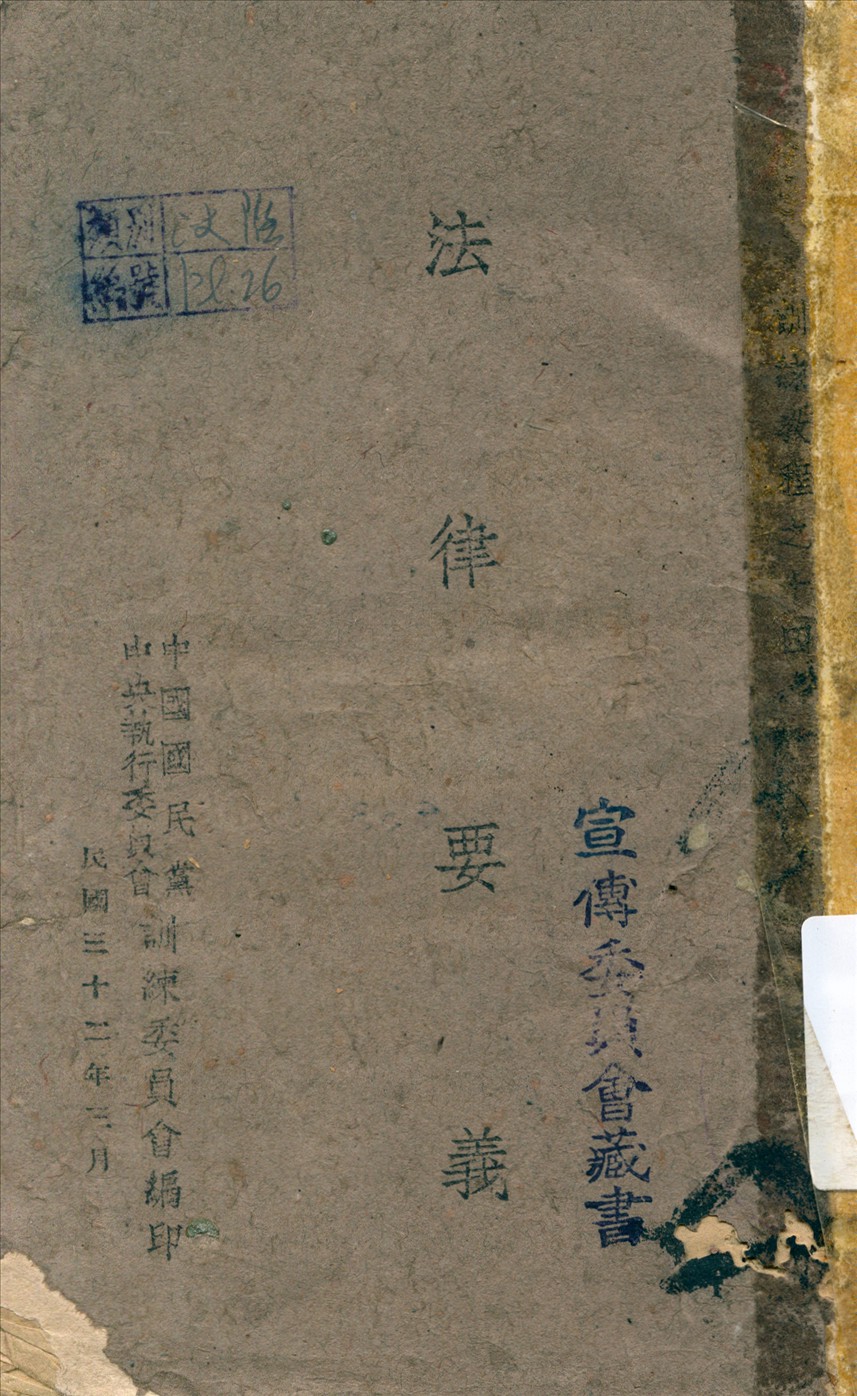 訓練教程之十四
宣傳委員會藏書
法律要義
類別
編號
中國國民黨
中央執行委員會
訓練委員會編印
民國三十二年三月